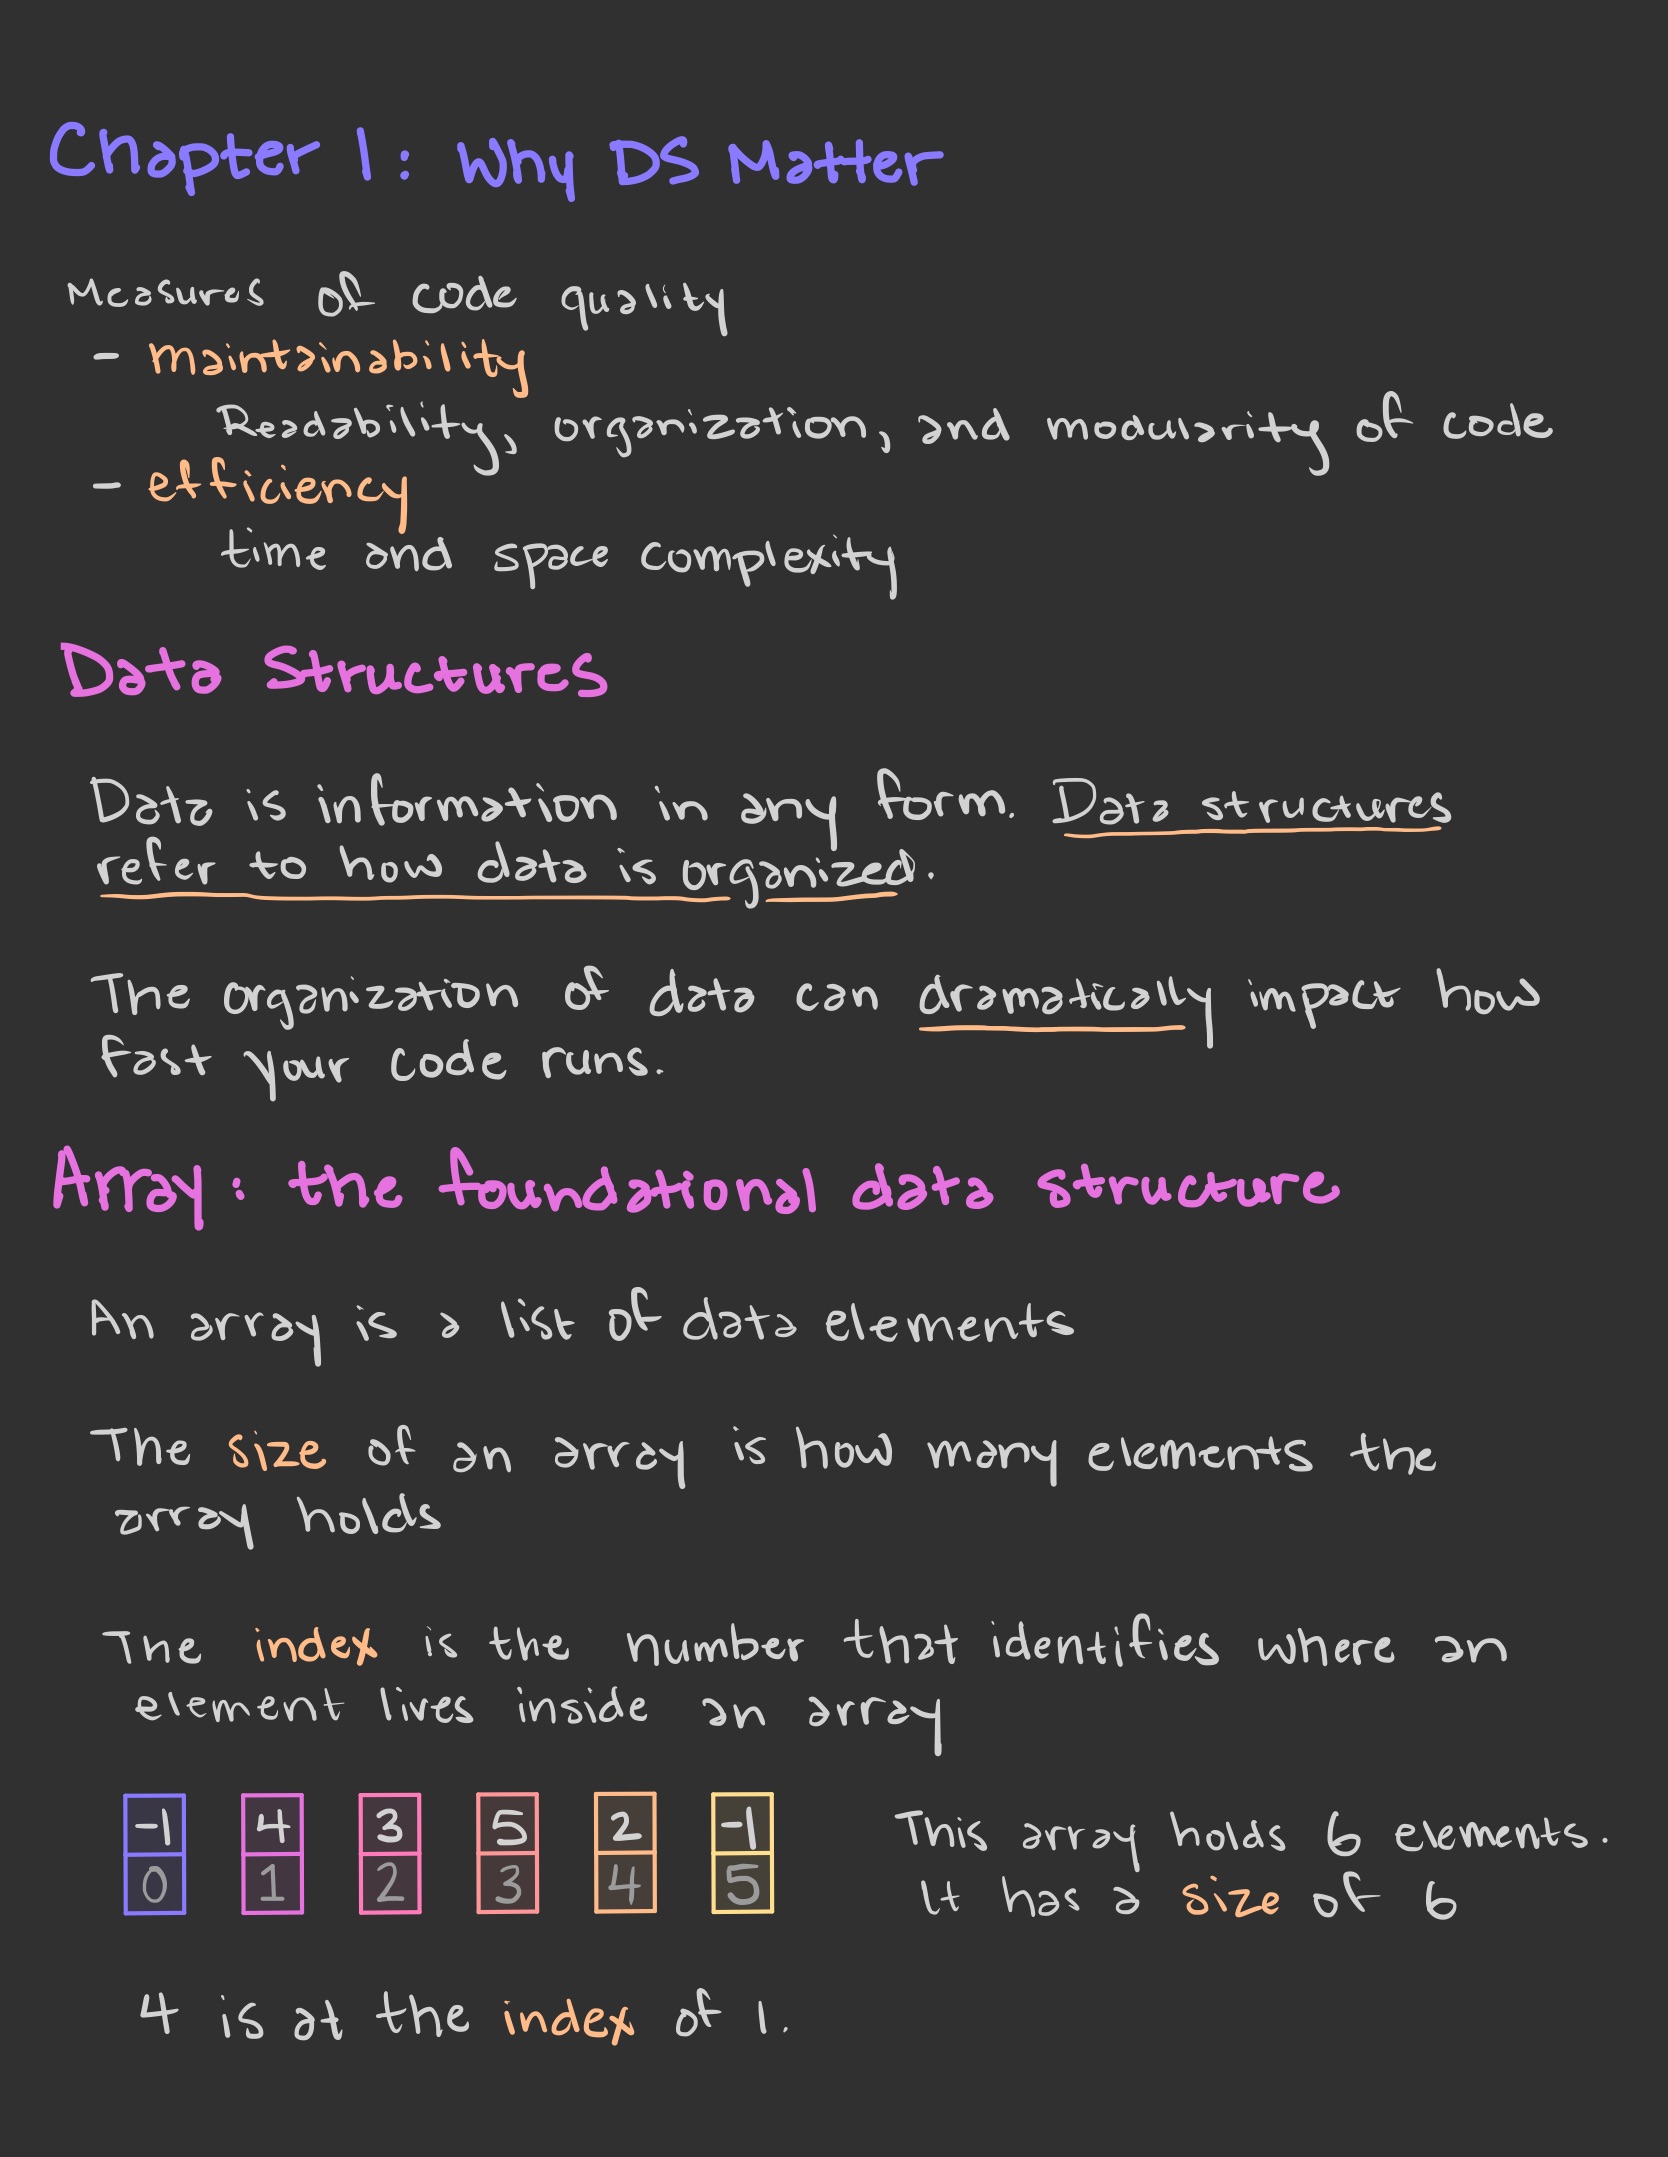 Chapter 1: Why DS Matter
Measures of code quality
- maintainability
Readability, organization, and modularity of code
- efficiency
time and space complexity
Data Structures
Data is information in any form. Data structures
refer to how data is organized.
The organization of data can dramatically impact how
fast your code runs.
Array: the foundational data structure
An array is a list of data elements
The size of an array is how many elements the
array holds
The index is the number that identifies where an
element lives inside an array
-1 4 3 5 2 -1
0 1 2 3 4 5
This array holds 6 elements.
It has a size of 6
4 is at the index of 1.